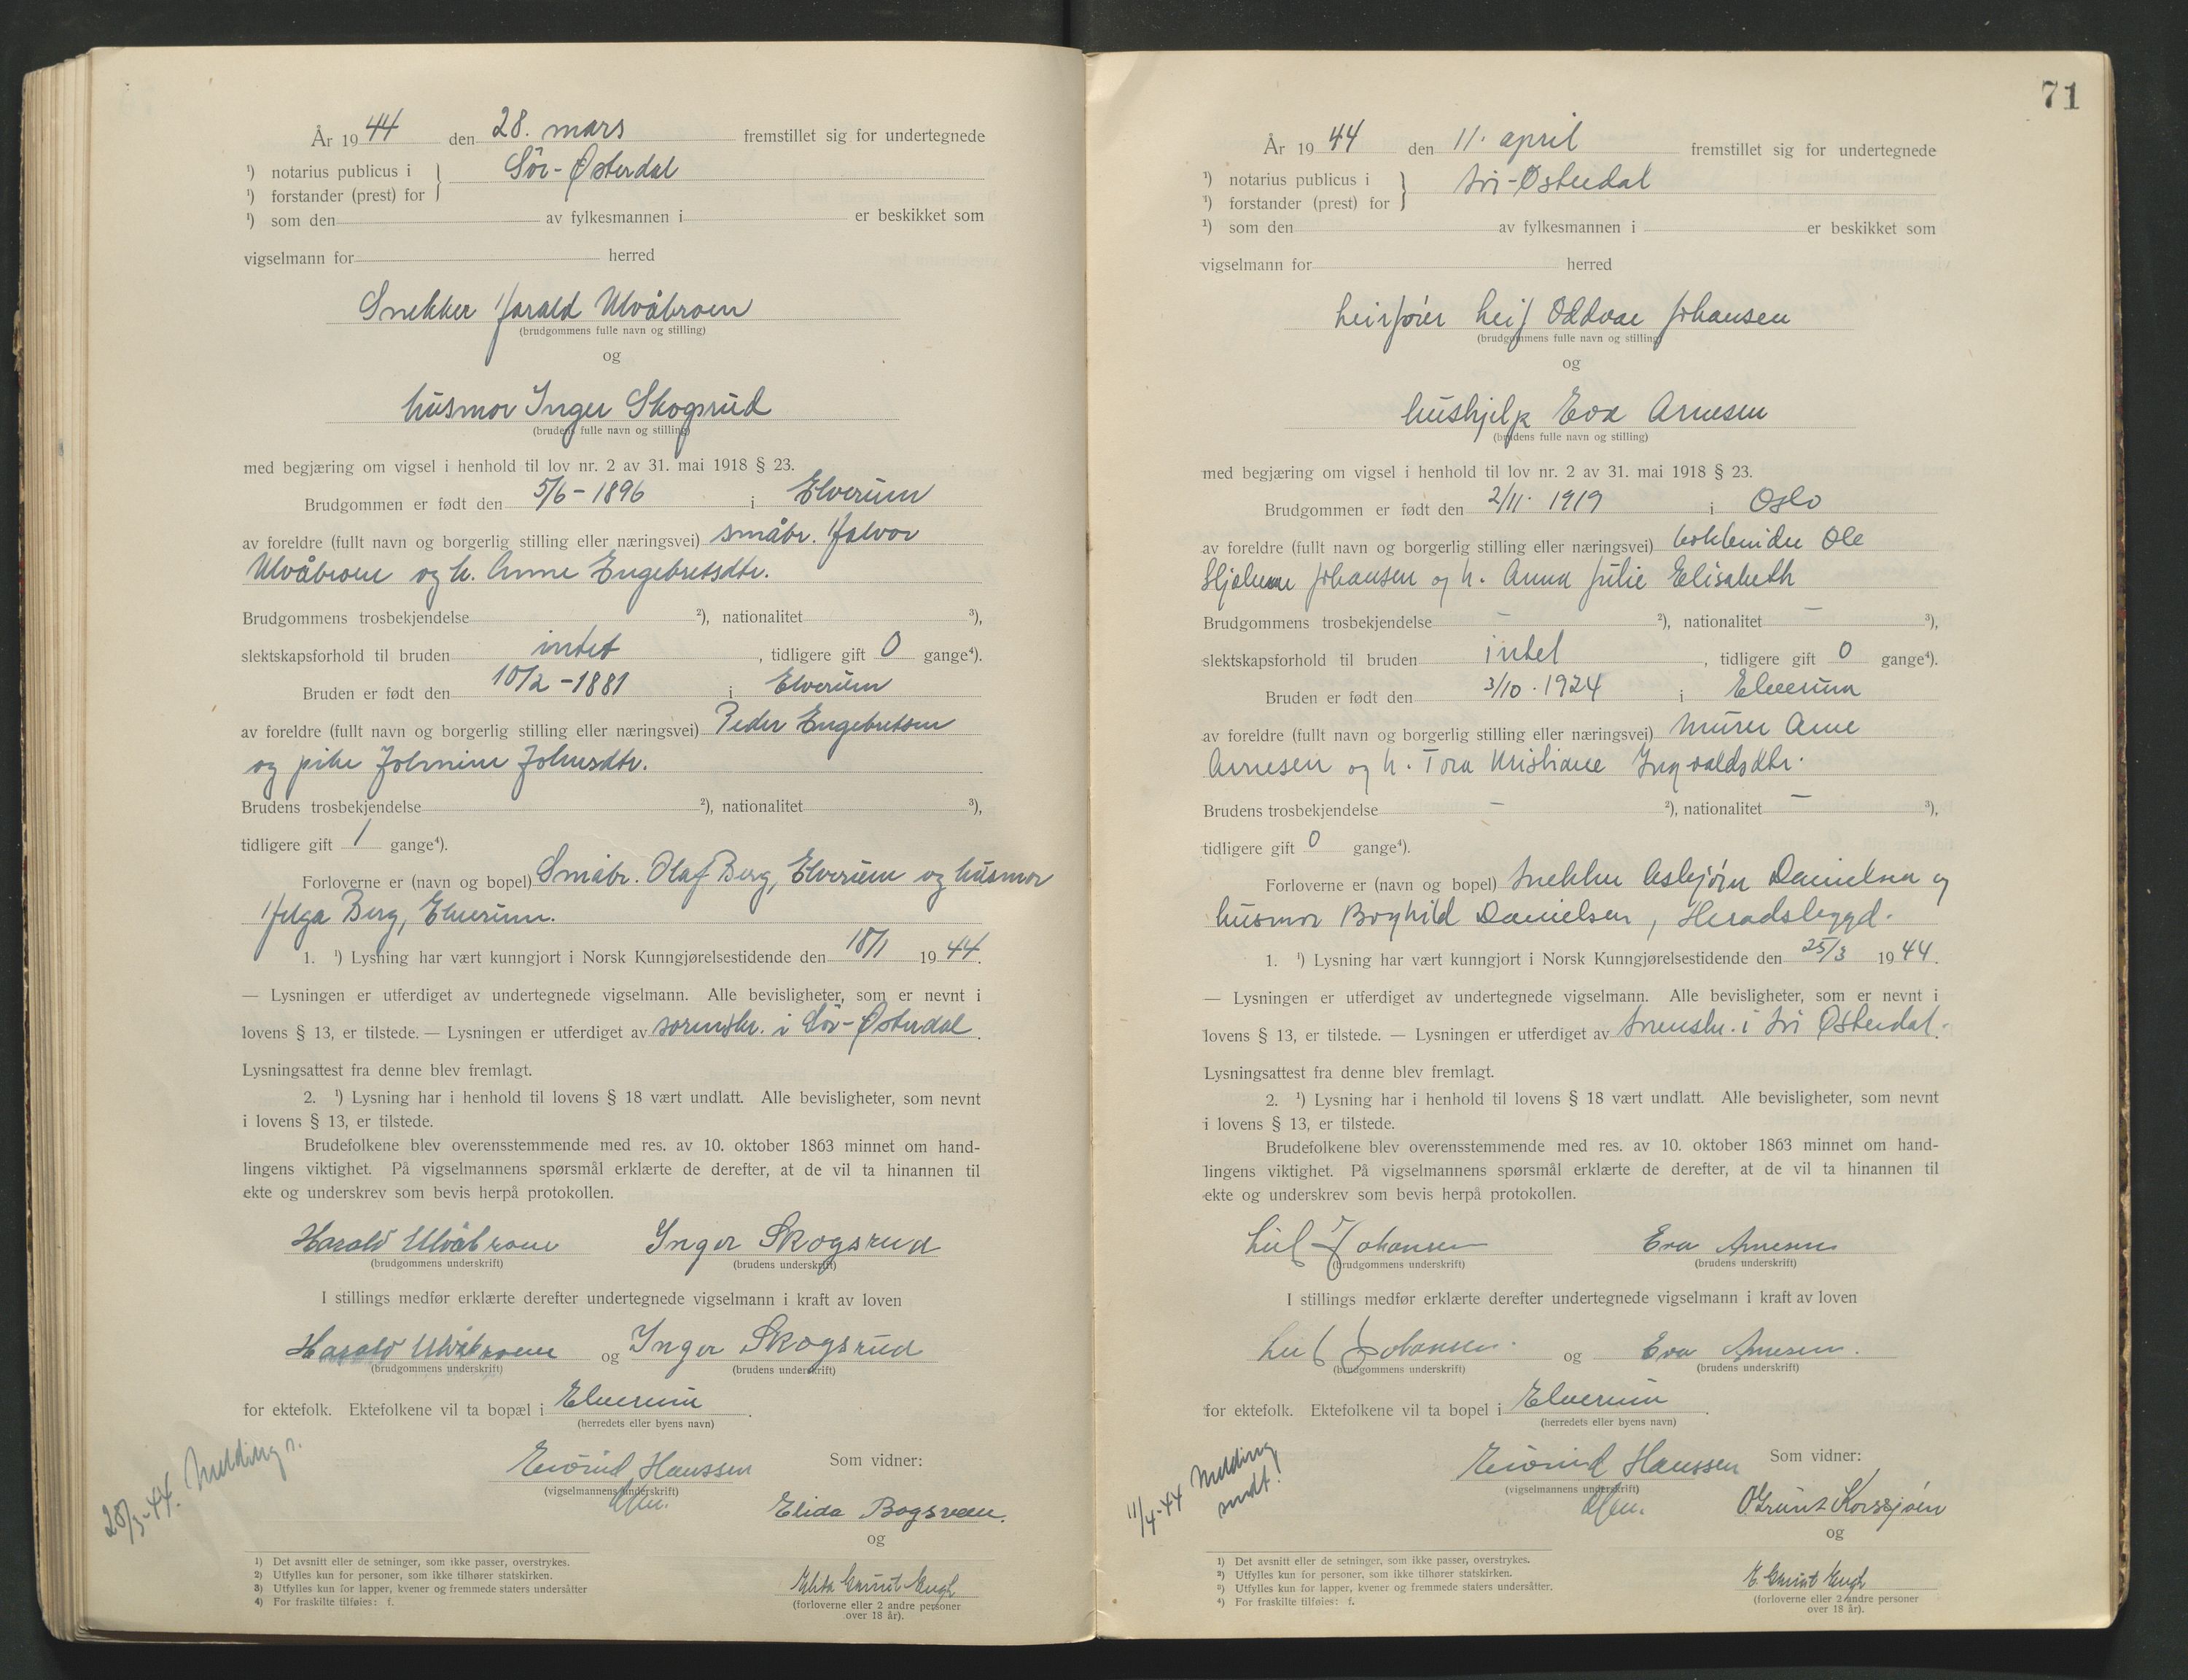 År 1944 den 28. mars fremstillet sig for undertegnede
¹) notarius publicus i
¹) forstander (prest) for } Sör-Østerdal
¹) som den av fylkesmannen i er beskikket som
vigselmann for herred
Snekker Harald Ulvåbroen
(brudgommens fulle navn og stilling)
og
husmor Inger Skogsrud
(brudens fulle navn og stilling)
med begjæring om vigsel i henhold til lov nr. 2 av 31. mai 1918 § 23.
Brudgommen er født den 5/6-1896 i Elverum
av foreldre (fullt navn og borgerlig stilling eller næringsvei) småbr. Halvor
Ulvåbroen og h. Anne Engebretsdtr.
Brudgommens trosbekjendelse ²), nationalitet ³),
slektskapsforhold til bruden intet, tidligere gift 0 gange⁴).
Bruden er født den 10/2-1881 i Elverum
av foreldre (fullt navn og borgerlig stilling eller næringsvei) Peder Engebretsen
og pike Johnine Johnsdtr.
Brudens trosbekjendelse ²), nationalitet ³),
tidligere gift 1 gange⁴).
Forloverne er (navn og bopel) Småbr. Olaf Berg, Elverum og husmor
Helga Berg, Elverum.
1. ¹) Lysning har vært kunngjort i Norsk Kunngjørelsestidende den 18/1 1944.
— Lysningen er utferdiget av undertegnede vigselmann. Alle bevisligheter, som er nevnt i
lovens § 13, er tilstede. — Lysningen er utferdiget av sorenskr. i Sör-Østerdal.
Lysningsattest fra denne blev fremlagt.
2. ¹) Lysning har i henhold til lovens § 18 vært undlatt. Alle bevisligheter, som nevnt
i lovens § 13, er tilstede.
Brudefolkene blev overensstemmende med res. av 10. oktober 1863 minnet om hand-
lingens viktighet. På vigselmannens spørsmål erklærte de derefter, at de vil ta hinannen til
ekte og underskrev som bevis herpå protokollen.
Harald Ulvåbroen Inger Skogsrud
(brudgommens underskrift) (brudens underskrift)
I stillings medfør erklærte derefter undertegnede vigselmann i kraft av loven
Harald Ulvåbroen og Inger Skogsrud
(brudgommens underskrift) (brudens underskrift)
for ektefolk. Ektefolkene vil ta bopæl i Elverum.
(herredets eller byens navn)
28/3-44. Melding s.
Eivind Hanssen Som vidner:
(vigselmannens underskrift)
Elida Bogsveen.
og
Grunt Engh
(forloverne eller 2 andre personer
over 18 år).
1) Det avsnitt eller de setninger, som ikke passer, overstrykes.
2) Utfylles kun for personer, som ikke tilhører statskirken.
3) Utfylles kun for lapper, kvener og fremmede staters undersåtter
4) For fraskilte tilføies: f.
71
År 1944 den 11. april fremstillet sig for undertegnede
¹) notarius publicus i
¹) forstander (prest) for } Sör-Østerdal
¹) som den av fylkesmannen i er beskikket som
vigselmann for herred
Leirförer Leif Oddvar Johansen
(brudgommens fulle navn og stilling)
og
hushjelp Eva Arnesen
(brudens fulle navn og stilling)
med begjæring om vigsel i henhold til lov nr. 2 av 31. mai 1918 § 23.
Brudgommen er født den 2/11. 1919 i Oslo
av foreldre (fullt navn og borgerlig stilling eller næringsvei) bokbinder Ole
Hjalmar Johansen og h. Anna Julie Elisabeth
Brudgommens trosbekjendelse – ²), nationalitet – ³),
slektskapsforhold til bruden intet, tidligere gift 0 gange⁴).
Bruden er født den 3/10.1924 i Elverum
av foreldre (fullt navn og borgerlig stilling eller næringsvei) murer Arne
Arnesen og h. Tora Kristiane Ingvaldsdtr.
Brudens trosbekjendelse – ²), nationalitet – ³),
tidligere gift 0 gange⁴).
Forloverne er (navn og bopel) Snekker Asbjörn Danielsen og
husmor Borghild Danielsen, Heradsbygd.
1. ¹) Lysning har vært kunngjort i Norsk Kunngjørelsestidende den 25/3 1944.
— Lysningen er utferdiget av undertegnede vigselmann. Alle bevisligheter, som er nevnt i
lovens § 13, er tilstede. — Lysningen er utferdiget av sorenskr. i Sör Østerdal.
Lysningsattest fra denne blev fremlagt.
2. ¹) Lysning har i henhold til lovens § 18 vært undlatt. Alle bevisligheter, som nevnt
i lovens § 13, er tilstede.
Brudefolkene blev overensstemmende med res. av 10. oktober 1863 minnet om hand-
lingens viktighet. På vigselmannens spørsmål erklærte de derefter, at de vil ta hinannen til
ekte og underskrev som bevis herpå protokollen.
Leif Johansen Eva Arnesen
(brudgommens underskrift) (brudens underskrift)
I stillings medfør erklærte derefter undertegnede vigselmann i kraft av loven
Leif Johansen og Eva Arnesen.
(brudgommens underskrift) (brudens underskrift)
for ektefolk. Ektefolkene vil ta bopel i Elverum.
(herredets eller byens navn)
11/4-44 Melding
sendt!
Eivind Hanssen Som vidner:
(vigselmannens underskrift)
O. Grunt Korssjöen
og
E. Grunt Engh
(forloverne eller 2 andre personer
over 18 år).
¹) Det avsnitt eller de setninger, som ikke passer, overstrykes.
²) Utfylles kun for personer, som ikke tilhører statskirken.
³) Utfylles kun for lapper, kvener og fremmede staters undersåtter.
⁴) For fraskilte tilføies: f.